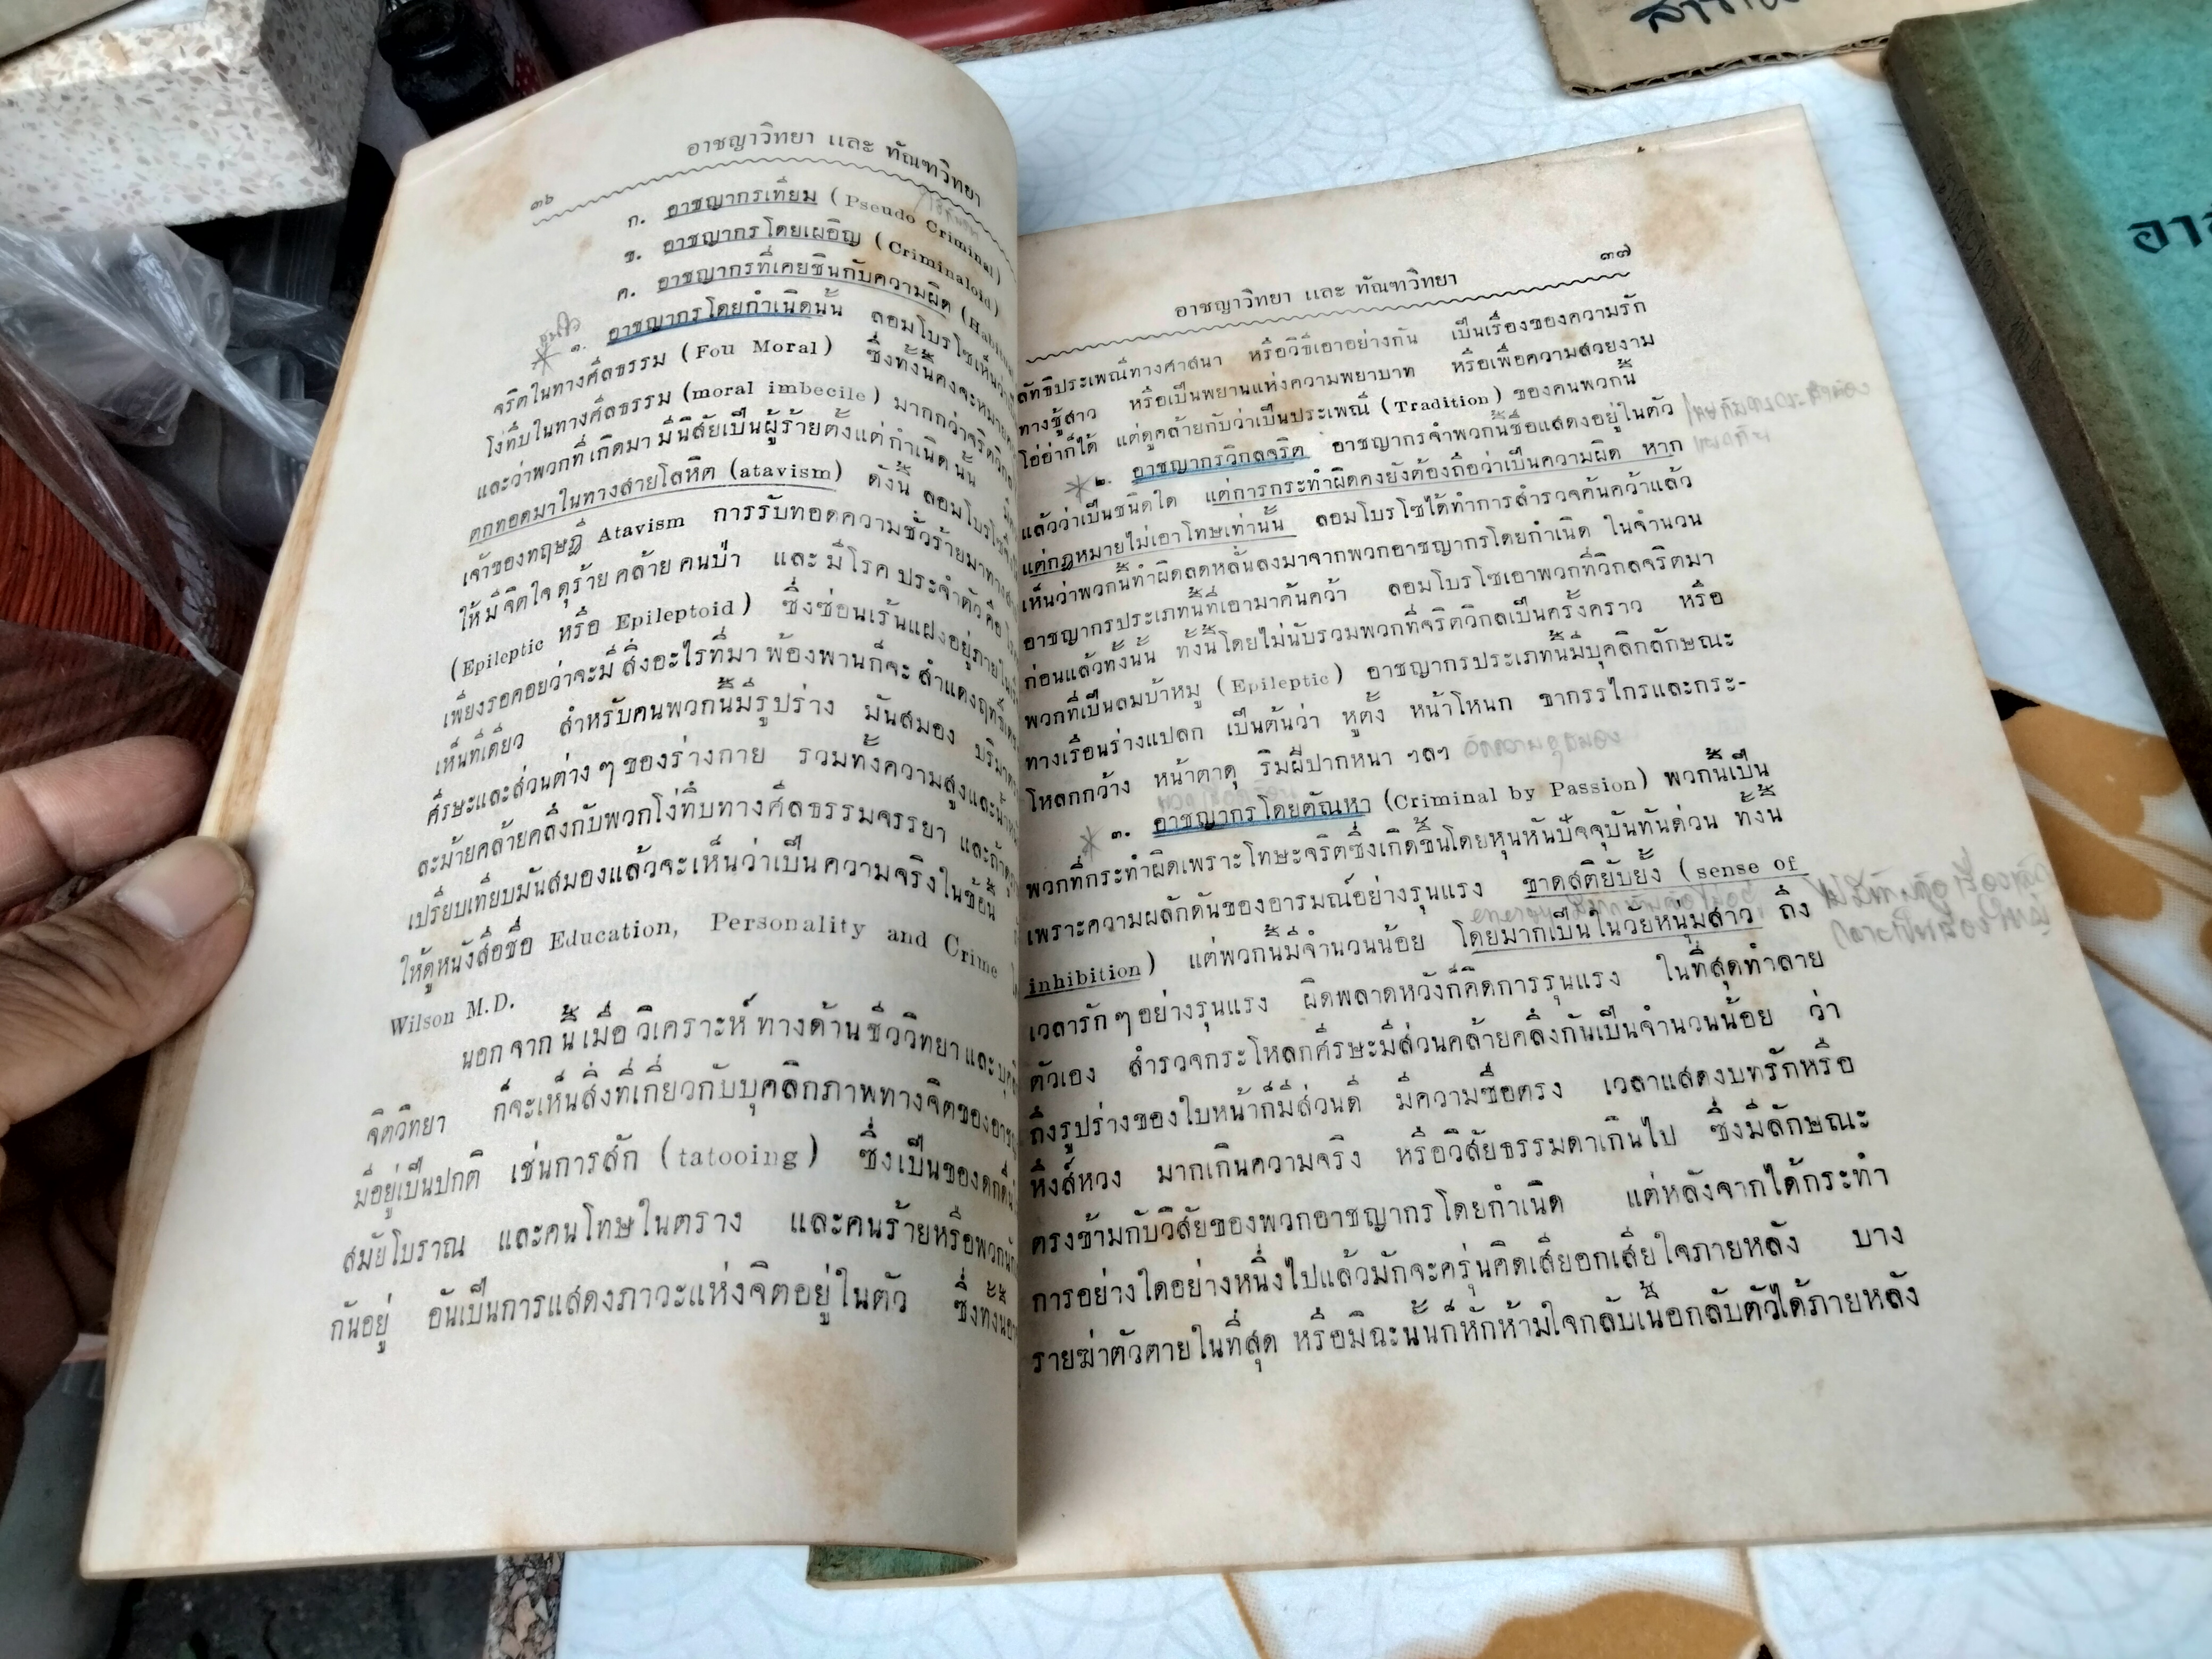 อาชญาวิทยา และ ทัณฑวิทยา
๓๖
ก. อาชญากรเทียม (Pseudo Criminal)
ข. อาชญากรโดยเผอิญ (Criminaloid)
ค. อาชญากรที่เคยชินกับความผิด
๑. อาชญากรโดยกำเนิดนั้น ลอมโบรโซเห็นว่า
จริตในทางศีลธรรม (Fou Moral) ซึ่งทั้งนี้คงจะหมาย
โง่ทึบในทางศีลธรรม (moral imbecile) มากกว่าจริตวิกล
และว่าพวกที่เกิดมา มีนิสัยเป็นผู้ร้ายตั้งแต่กำเนิดนั้น
ตกทอดมาในทางสายโลหิต (atavism) ดังนี้ ลอมโบรโซ
เจ้าของทฤษฎี Atavism การรับทอดความชั่วร้ายมาทาง
ให้มีจิตใจดุร้ายคล้ายคนป่า และมีโรคประจำตัวคือ
(Epileptic หรือ Epileptoid) ซึ่งซ่อนเร้นแฝงอยู่ภายใน
เพียงรอคอยว่าจะมีสิ่งอะไรที่มาพ้องพานก็จะสำแดงฤทธิ์
เห็นทีเดียว สำหรับคนพวกนี้มีรูปร่าง มันสมอง
ศีรษะและส่วนต่าง ๆ ของร่างกาย รวมทั้งความสูงและ
ละม้ายคล้ายคลึงกับพวกโง่ทึบทางศีลธรรมจรรยา และถ้า
เปรียบเทียบมันสมองแล้วจะเห็นว่าเป็นความจริงในข้อนี้
ให้ดูหนังสือชื่อ Education, Personality and Crime
Wilson M.D.
นอกจากนี้เมื่อวิเคราะห์ทางด้านชีววิทยาและ
จิตวิทยา ก็จะเห็นสิ่งที่เกี่ยวกับบุคลิกภาพทางจิตของ
มีอยู่เป็นปกติ เช่นการสัก (tatooing) ซึ่งเป็นของ
สมัยโบราณ และคนโทษในตราง และคนร้ายหรือพวก
กันอยู่ อันเป็นการแสดงภาวะแห่งจิตอยู่ในตัว
๓๗
อาชญาวิทยา และ ทัณฑวิทยา
ลัทธิประเพณีทางศาสนา หรือวิธีเอาอย่างกัน เป็นเรื่องของความรัก
ทางชู้สาว หรือเป็นพยานแห่งความพยาบาท หรือเพื่อความสวยงาม
โอ่อ่าก็ได้ แต่ดูคล้ายกับว่าเป็นประเพณี (Tradition) ของคนพวกนี้
๒. อาชญากรวิกลจริต อาชญากรจำพวกนี้ชื่อแสดงอยู่ในตัว
แล้วว่าเป็นชนิดใด แต่การกระทำผิดคงยังต้องถือว่าเป็นความผิด หาก
แต่กฎหมายไม่เอาโทษเท่านั้น ลอมโบรโซได้ทำการสำรวจค้นคว้าแล้ว
เห็นว่าพวกนี้ทำผิดลดหลั่นลงมาจากพวกอาชญากรโดยกำเนิด ในจำนวน
อาชญากรประเภทนี้ที่เอามาค้นคว้า ลอมโบรโซเอาพวกที่วิกลจริตมา
ก่อนแล้วทั้งนั้น ทั้งนี้โดยไม่นับรวมพวกที่จริตวิกลเป็นครั้งคราว หรือ
พวกที่เป็นลมบ้าหมู (Epileptic) อาชญากรประเภทนี้มีบุคลิกลักษณะ
ทางเรือนร่างแปลก เป็นต้นว่า หูตั้ง หน้าโหนก ขากรรไกรและกระ-
โหลกกว้าง หน้าตาดุ ริมฝีปากหนา ฯลฯ
๓. อาชญากรโดยตัณหา (Criminal by Passion) พวกนี้เป็น
พวกที่กระทำผิดเพราะโทษะจริตซึ่งเกิดขึ้นโดยหุนหันปัจจุบันทันด่วน ทั้งนี้
เพราะความผลักดันของอารมณ์อย่างรุนแรง ขาดสติยับยั้ง (sense of
inhibition) แต่พวกนี้มีจำนวนน้อย โดยมากเป็นในวัยหนุ่มสาว ถึง
เวลารัก ๆ อย่างรุนแรง ผิดพลาดหวังก็คิดการรุนแรง ในที่สุดทำลาย
ตัวเอง สำรวจกระโหลกศีรษะมีส่วนคล้ายคลึงกันเป็นจำนวนน้อย ว่า
ถึงรูปร่างของใบหน้าก็มีส่วนดี มีความซื่อตรง เวลาแสดงบทรักหรือ
หึงส์หวง มากเกินความจริง หรือวิสัยธรรมดาเกินไป ซึ่งมีลักษณะ
ตรงข้ามกับวิสัยของพวกอาชญากรโดยกำเนิด แต่หลังจากได้กระทำ
การอย่างใดอย่างหนึ่งไปแล้วมักจะครุ่นคิดเสียอกเสียใจภายหลัง บาง
รายฆ่าตัวตายในที่สุด หรือมิฉะนั้นก็หักห้ามใจกลับเนื้อกลับตัวได้ภายหลัง